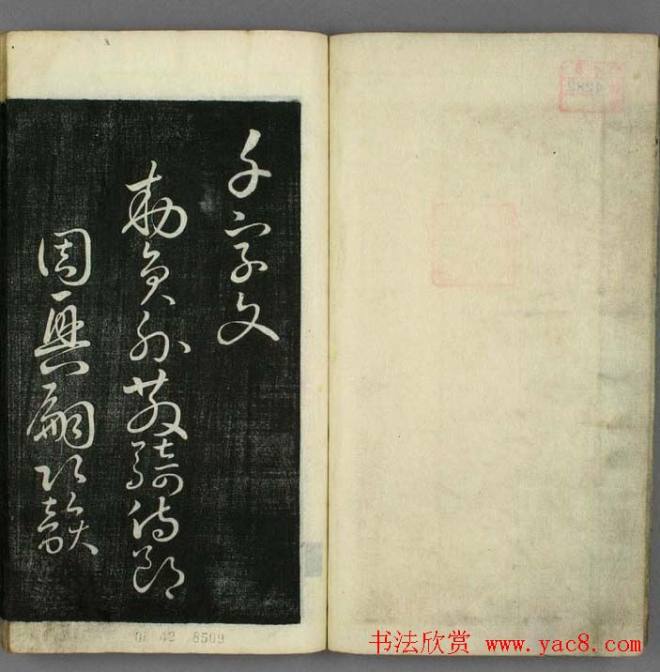 千字文
勅員外散騎侍郎
周興嗣次韻
4282
01 42 8509
书法欣赏 www.yac8.com